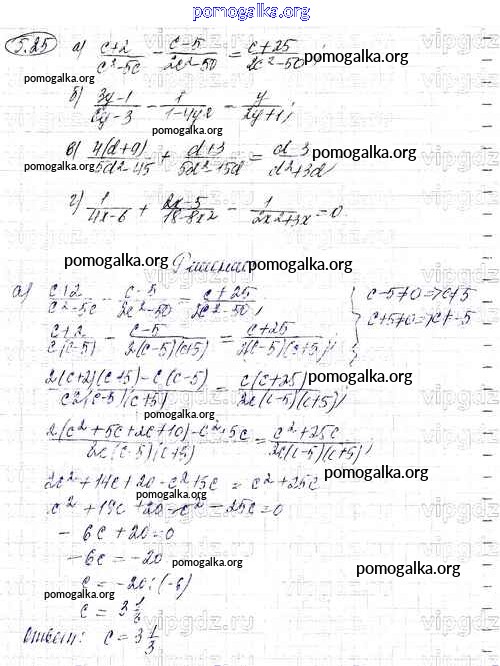 pomogalka.org
5.25 а) (c+2)/(c²-5c) - (c-5)/(2c²-50) = (c+25)/(2c²-50);
pomogalka.org
pomogalka.org
б) (3y-1)/(2y-3) - 1/(1-4y²) - y/(2y+1);
pomogalka.org
в) 4(d+9)/(5d²-45) + (d+3)/(5d²-15d) = (d-3)/(d²+3d)
pomogalka.org
pomogalka.org
г) 1/(4x-6) + (2x-5)/(18-8x²) - 1/(2x²+3x) = 0
pomogalka.org
Решение
pomogalka.org
pomogalka.org
а) (c+2)/(c²-5c) - (c-5)/(2c²-50) = (c+25)/(2c²-50);
c-5≠0 => c≠5
pomogalka.org
(c+2)/(c(c-5)) - (c-5)/(2(c-5)(c+5)) = (c+25)/(2(c-5)(c+5));
c+5≠0 => c≠-5
(2(c+2)(c+5)-c(c-5))/(c2(c-5)(c+5)) = c(c+25)/(2c(c-5)(c+5));
pomogalka.org
pomogalka.org
(2(c²+5c+2c+10)-c²+5c)/(2c(c-5)(c+5)) = (c²+25c)/(2c(c-5)(c+5));
pomogalka.org
2c²+14c+20-c²+5c = c²+25c
pomogalka.org
c²+19c+20-c²-25c=0
pomogalka.org
-6c+20=0
-6c=-20
pomogalka.org
c=-20:(-6)
pomogalka.org
pomogalka.org
c=3 1/3
pomogalka.org
Ответ: c=3 1/3
pomogalka.org